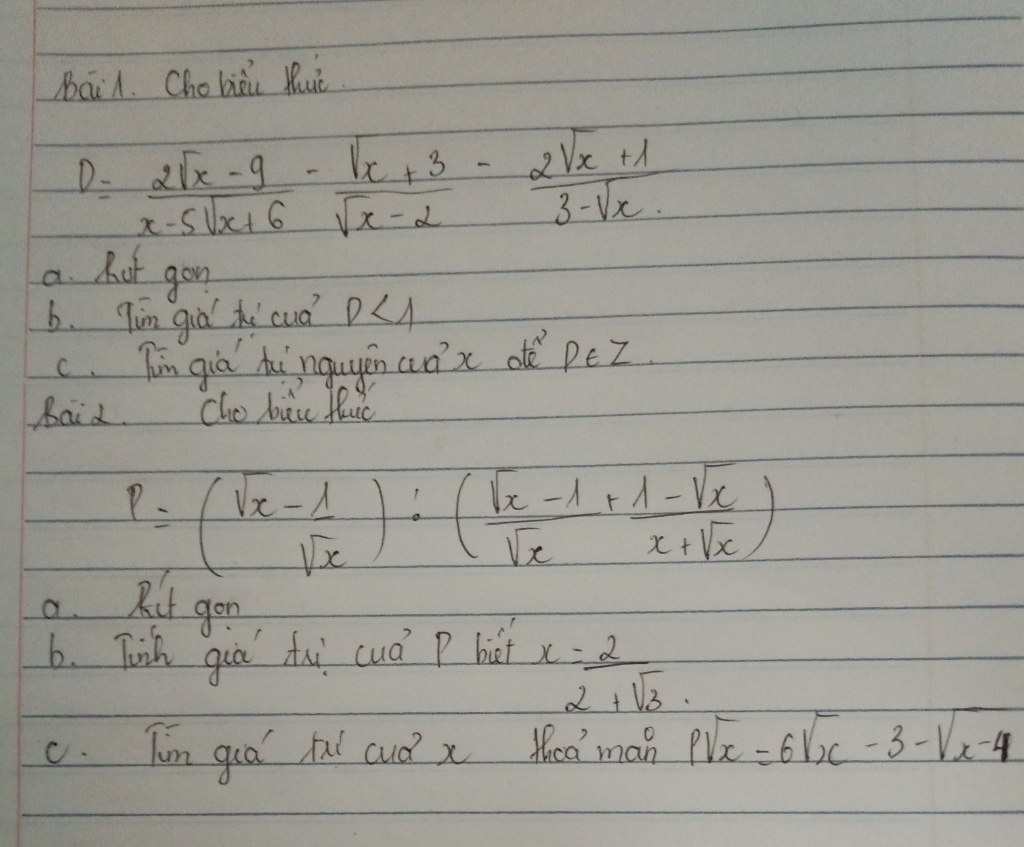 Bài 1. Cho biểu thức.
D = \frac{2\sqrt{x} - 9}{x - 5\sqrt{x} + 6} - \frac{\sqrt{x} + 3}{\sqrt{x} - 2} - \frac{2\sqrt{x} + 1}{3 - \sqrt{x}}.
a. Rút gọn
b. Tìm giá trị của D < 1
c. Tìm giá trị nguyên của x để D ∈ Z.
Bài 2. Cho biểu thức
P = \left( \sqrt{x} - \frac{1}{\sqrt{x}} \right) : \left( \frac{\sqrt{x} - 1}{\sqrt{x}} + \frac{1 - \sqrt{x}}{x + \sqrt{x}} \right)
a. Rút gọn
b. Tính giá trị của P biết x = \frac{2}{2 + \sqrt{3}}.
c. Tìm giá trị của x thoả mãn P\sqrt{x} = 6\sqrt{x} - 3 - \sqrt{x - 4}